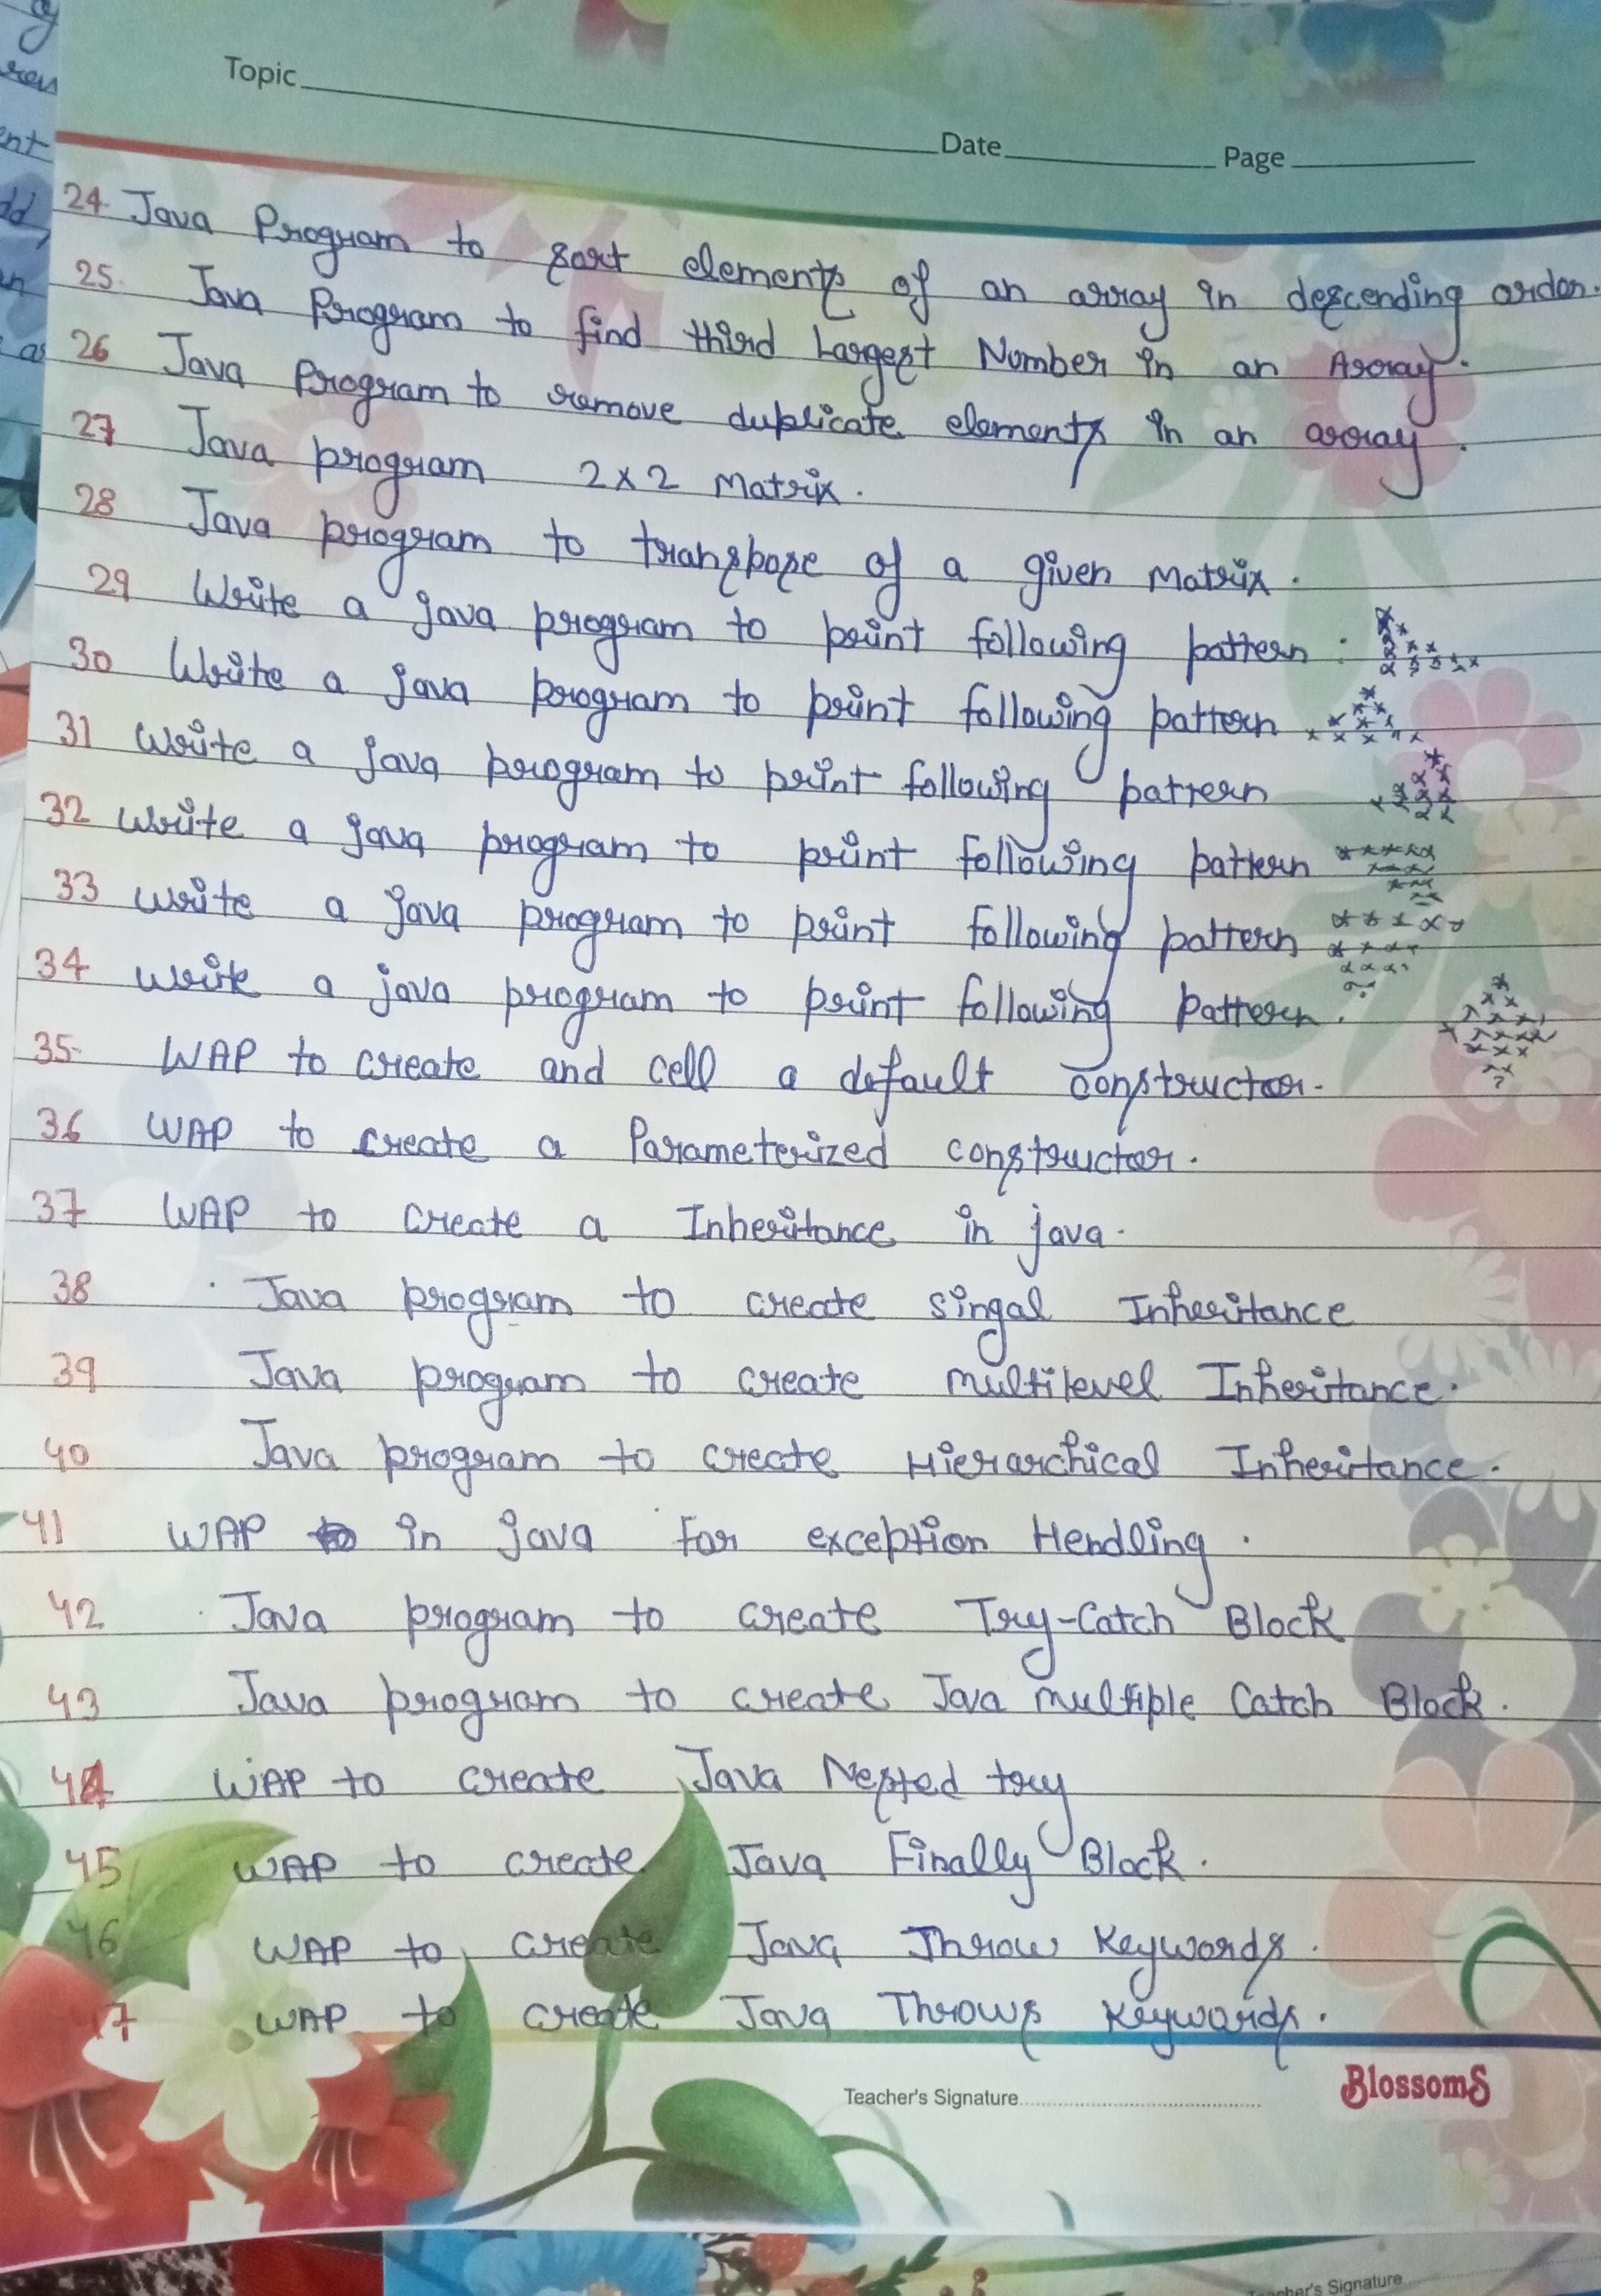 Topic Date Page
24. Java Program to sort elements of an array in descending order.
25. Java Program to find third Largest Number in an Array.
26 Java Program to remove duplicate elements in an array.
27 Java program 2x2 Matrix.
28 Java program to transpose of a given Matrix.
29 Write a java program to print following pattern :
30 Write a java program to print following pattern
31 Write a java program to print following pattern
32 Write a java program to print following pattern
33 Write a java program to print following pattern
34 Write a java program to print following Pattern.
35. WAP to create and cell a default constructor.
36 WAP to create a Parameterized constructor.
37 WAP to create a Inheritance in java.
38 Java program to create singal Inheritance
39 Java program to create multilevel Inheritance.
40 Java program to create Hierarchical Inheritance.
41 WAP in java for exception Hendling.
42 Java program to create Try-Catch Block
43 Java program to create Java multiple Catch Block.
44 WAP to create Java Nested try
45 WAP to create Java Finally Block.
46 WAP to create Java Throw Keywords.
47 WAP to create Java Throws Keywords.
Teacher's Signature
BlossomS
Teacher's Signature